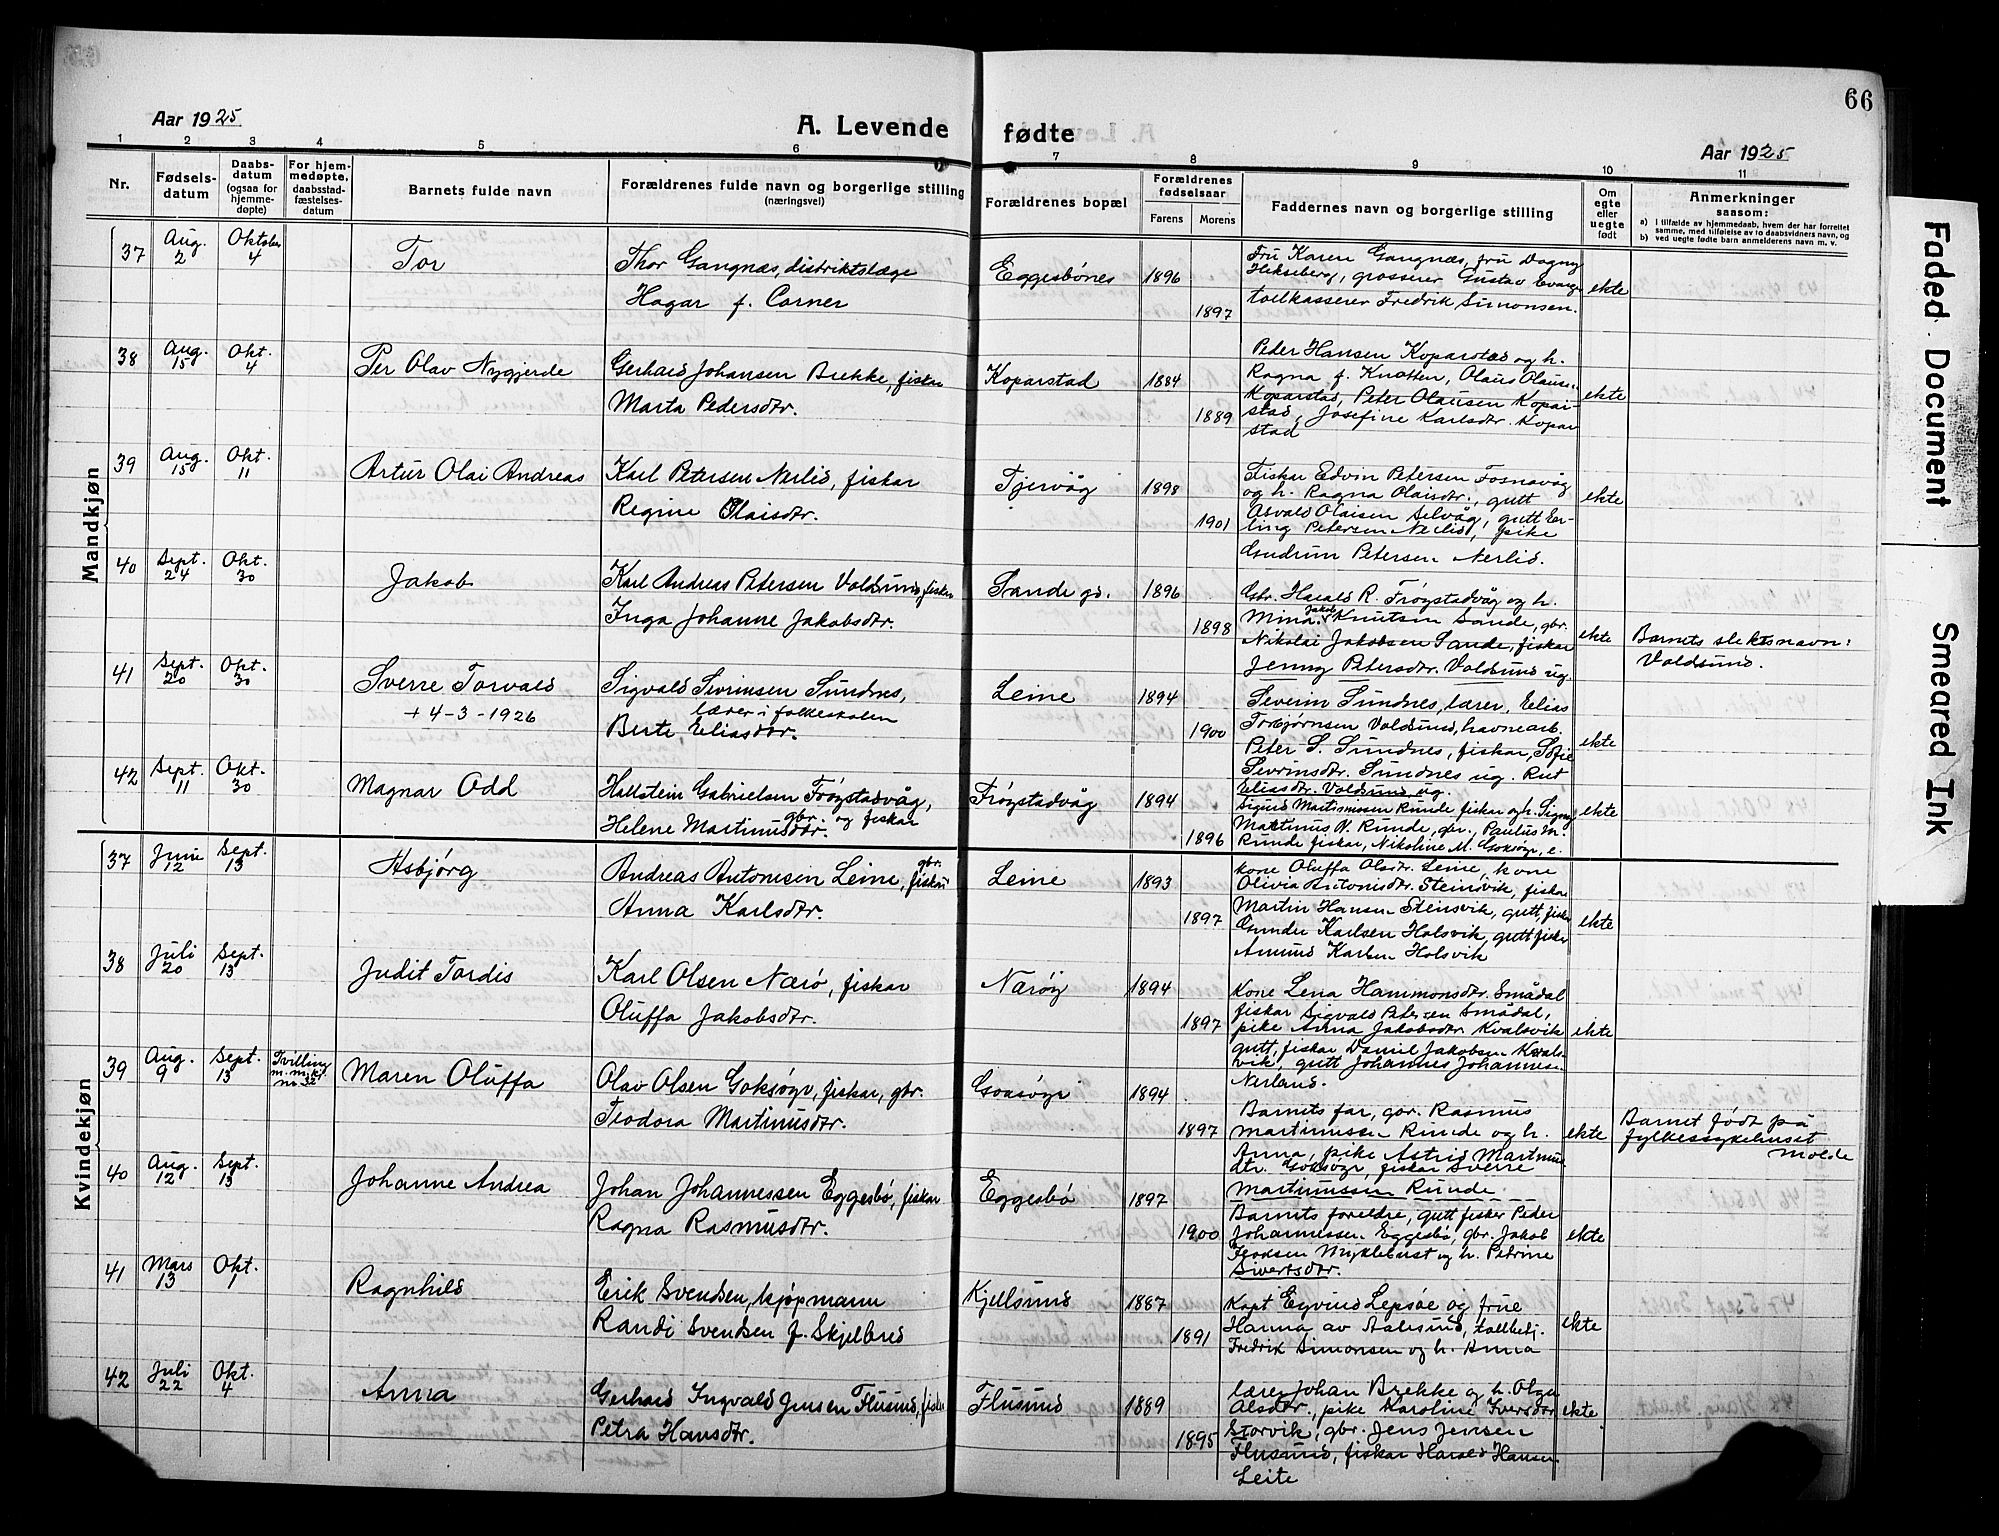 66
Aar 1925
A. Levende fødte
Aar 1925
1 2 3 4 5 6 7 8 9 10 11
Nr.
Fødsels-
datum
Daabs-
datum
(ogsaa for
hjemme-
døpte)
For hjem-
medøpte,
daabsstad-
fæstelses-
datum
Barnets fulde navn
Forældrenes fulde navn og borgerlige stilling
(næringsvei)
Forældrenes bopæl
Forældrenes
fødselsaar
Farens
Morens
Faddernes navn og borgerlige stilling
Om
egte
eller
uegte
født
Anmerkninger
saasom:
a) I tilfælde av hjemmedaab, hvem der har forrettet
samme, med tilføielse av to daabsvidners navn, og
b) ved uegte fødte barn anmelderens navn m. v.
Mandkjøn
37 Aug. 2 Oktober 4
Tor
Thor Gangnæs, distriktslæge
Hagar f. Carner
Eggesbønes 1896
1897
Fru Karen Gangnæs, fru Dagny
grosserer Gustav
tollkasserer Fredrik Simonsen.
ekte
38 Aug. 15 Okt. 4
Per Olav Nygjerde
Gerhard Johansen Brekke, fiskar
Marta Pedersdtr.
Koparstad 1884
1889
Peder Hansen Koparstad og h.
Ragna f. Knotten, Olaus Olausen
Koparstad, Peter Olausen Kopar-
stad, Josefine Karlsdtr. Kopar
stad
ekte
39 Aug. 15 Okt. 11
Artur Olai Andreas
Karl Petersen Nerlid, fiskar
Regine Olaisdtr.
Tjervåg 1898
1901
Fiskar Edvin Petersen Fosnavåg
og h. Ragna Olaisdtr., gutt
Osvald Olaisen Selvåg, gutt Er-
ling Petersen Nerlid, pike
Gudrun Petersen Nerlid.
ekte
40 Sept. 24 Okt. 30
Jakob
Karl Andreas Petersen Voldsund, fiskar
Inga Johanne Jakobsdtr.
Sande gs. 1896
1898
Gbr. Harald R. Frøystadvåg og h.
Mina, Jakob Knutsen Sande, gbr.
Nikolai Jakobsen Sande, fiskar
Jenny Petersdtr. Voldsund ug.
ekte
Barnets slektsnavn:
Voldsund.
41 Sept. 20 Okt. 30
Sverre Torvald
+ 4-3-1926
Sigvald Sevrinsen Sundnes,
lærer i folkeskolen
Berte Eliasdtr.
Leine 1894
1900
Severin Sundnes, lærer, Elias
Torbjørnsen Voldsund, havnearb.
Peter S. Sundnes, fiskar, Sofie
Sevrinsdtr. Sundnes ug. Rut
Eliasdtr. Voldsund ug.
ekte
42 Sept. 11 Okt. 30
Magnar Odd
Hallstein Gabrielsen Frøystadvåg,
gbr. og fiskar
Helene Martinusdtr.
Frøystadvåg 1894
1896
Sigurd Martinussen Runde fiskar og h. Signy
Martinus V. Runde, gbr., Paulus M.
Runde fiskar, Nikoline M. Goksøyr, e.
ekte
Kvindekjøn
37 Juni 12 Sept. 13
Asbjørg
Andreas Antonesen Leine, gbr. fiskar
Anna Karlsdtr.
Leine 1893
1897
kone Oluffa Olsdtr. Leine, kone
Olivia Antonisdtr. Steinsvik, fiskar
Martin Hansen Steinsvik, gutt, fisker
Gunder Karlsen Holsvik, gutt fisker
Amund Karlsen Holsvik
ekte
38 Juli 20 Sept. 13
Judit Tordis
Karl Olsen Nærø, fiskar
Oluffa Jakobsdtr.
Nærøy 1894
1897
Kone Lena Hammonsdtr. Smådal
fiskar Sigvald Petersen Smådal,
pike Anna Jakobsdtr Kvalsvik
gutt, fiskar Daniel Jakobsen Kvals-
vik, gutt Johannes Johannesen
Nerland.
ekte
39 Aug. 9 Sept. 13
Tvilling
m. m.k.
nr. 32
Maren Oluffa
Olav Olsen Goksøyr, fiskar, gbr.
Teodora Martinusdtr.
Goksøyr 1894
1897
Barnets far, gbr. Rasmus
Martinussen Runde og h.
Anna, pike Astrid Martinus
dtr. Goksøyr, fiskar Sverre
Martinussen Runde.
ekte
Barnet født på
fylkessykehuset
Molde
40 Aug. 12 Sept. 13
Johanne Andrea
Johan Johannessen Eggesbø, fiskar
Ragna Rasmusdtr.
Eggesbø 1897
1900
Barnets foreldre, gutt fisker Peder
Johannessen Eggesbø, gbr. Jakob
Myklebust og h. Petrine
Sivertsdtr.
ekte
41 Mars 13 Okt. 1
Ragnhild
Erik Svendsen, kjøpmann
Randi Svendsen f. Skjelbred
Kjellsund 1887
1891
Kapt Eyvind Lepsøe og frue
Hanna av Aalesund, tollbetj.
Fredrik Simonsen og h. Anna
ekte
42 Juli 22 Okt. 4
Anna
Gerhard Ingvald Jensen Flusund, fiskar
Petra Hansdtr.
Flusund 1889
1895
lærer Johan Brekke og h. Olga
Olsdtr., pike Karoline Iversdtr
Storvik, gbr. Jens Jensen
Flusund, fiskar Harald Hansen
Leite
ekte
Faded Document
Smeared Ink